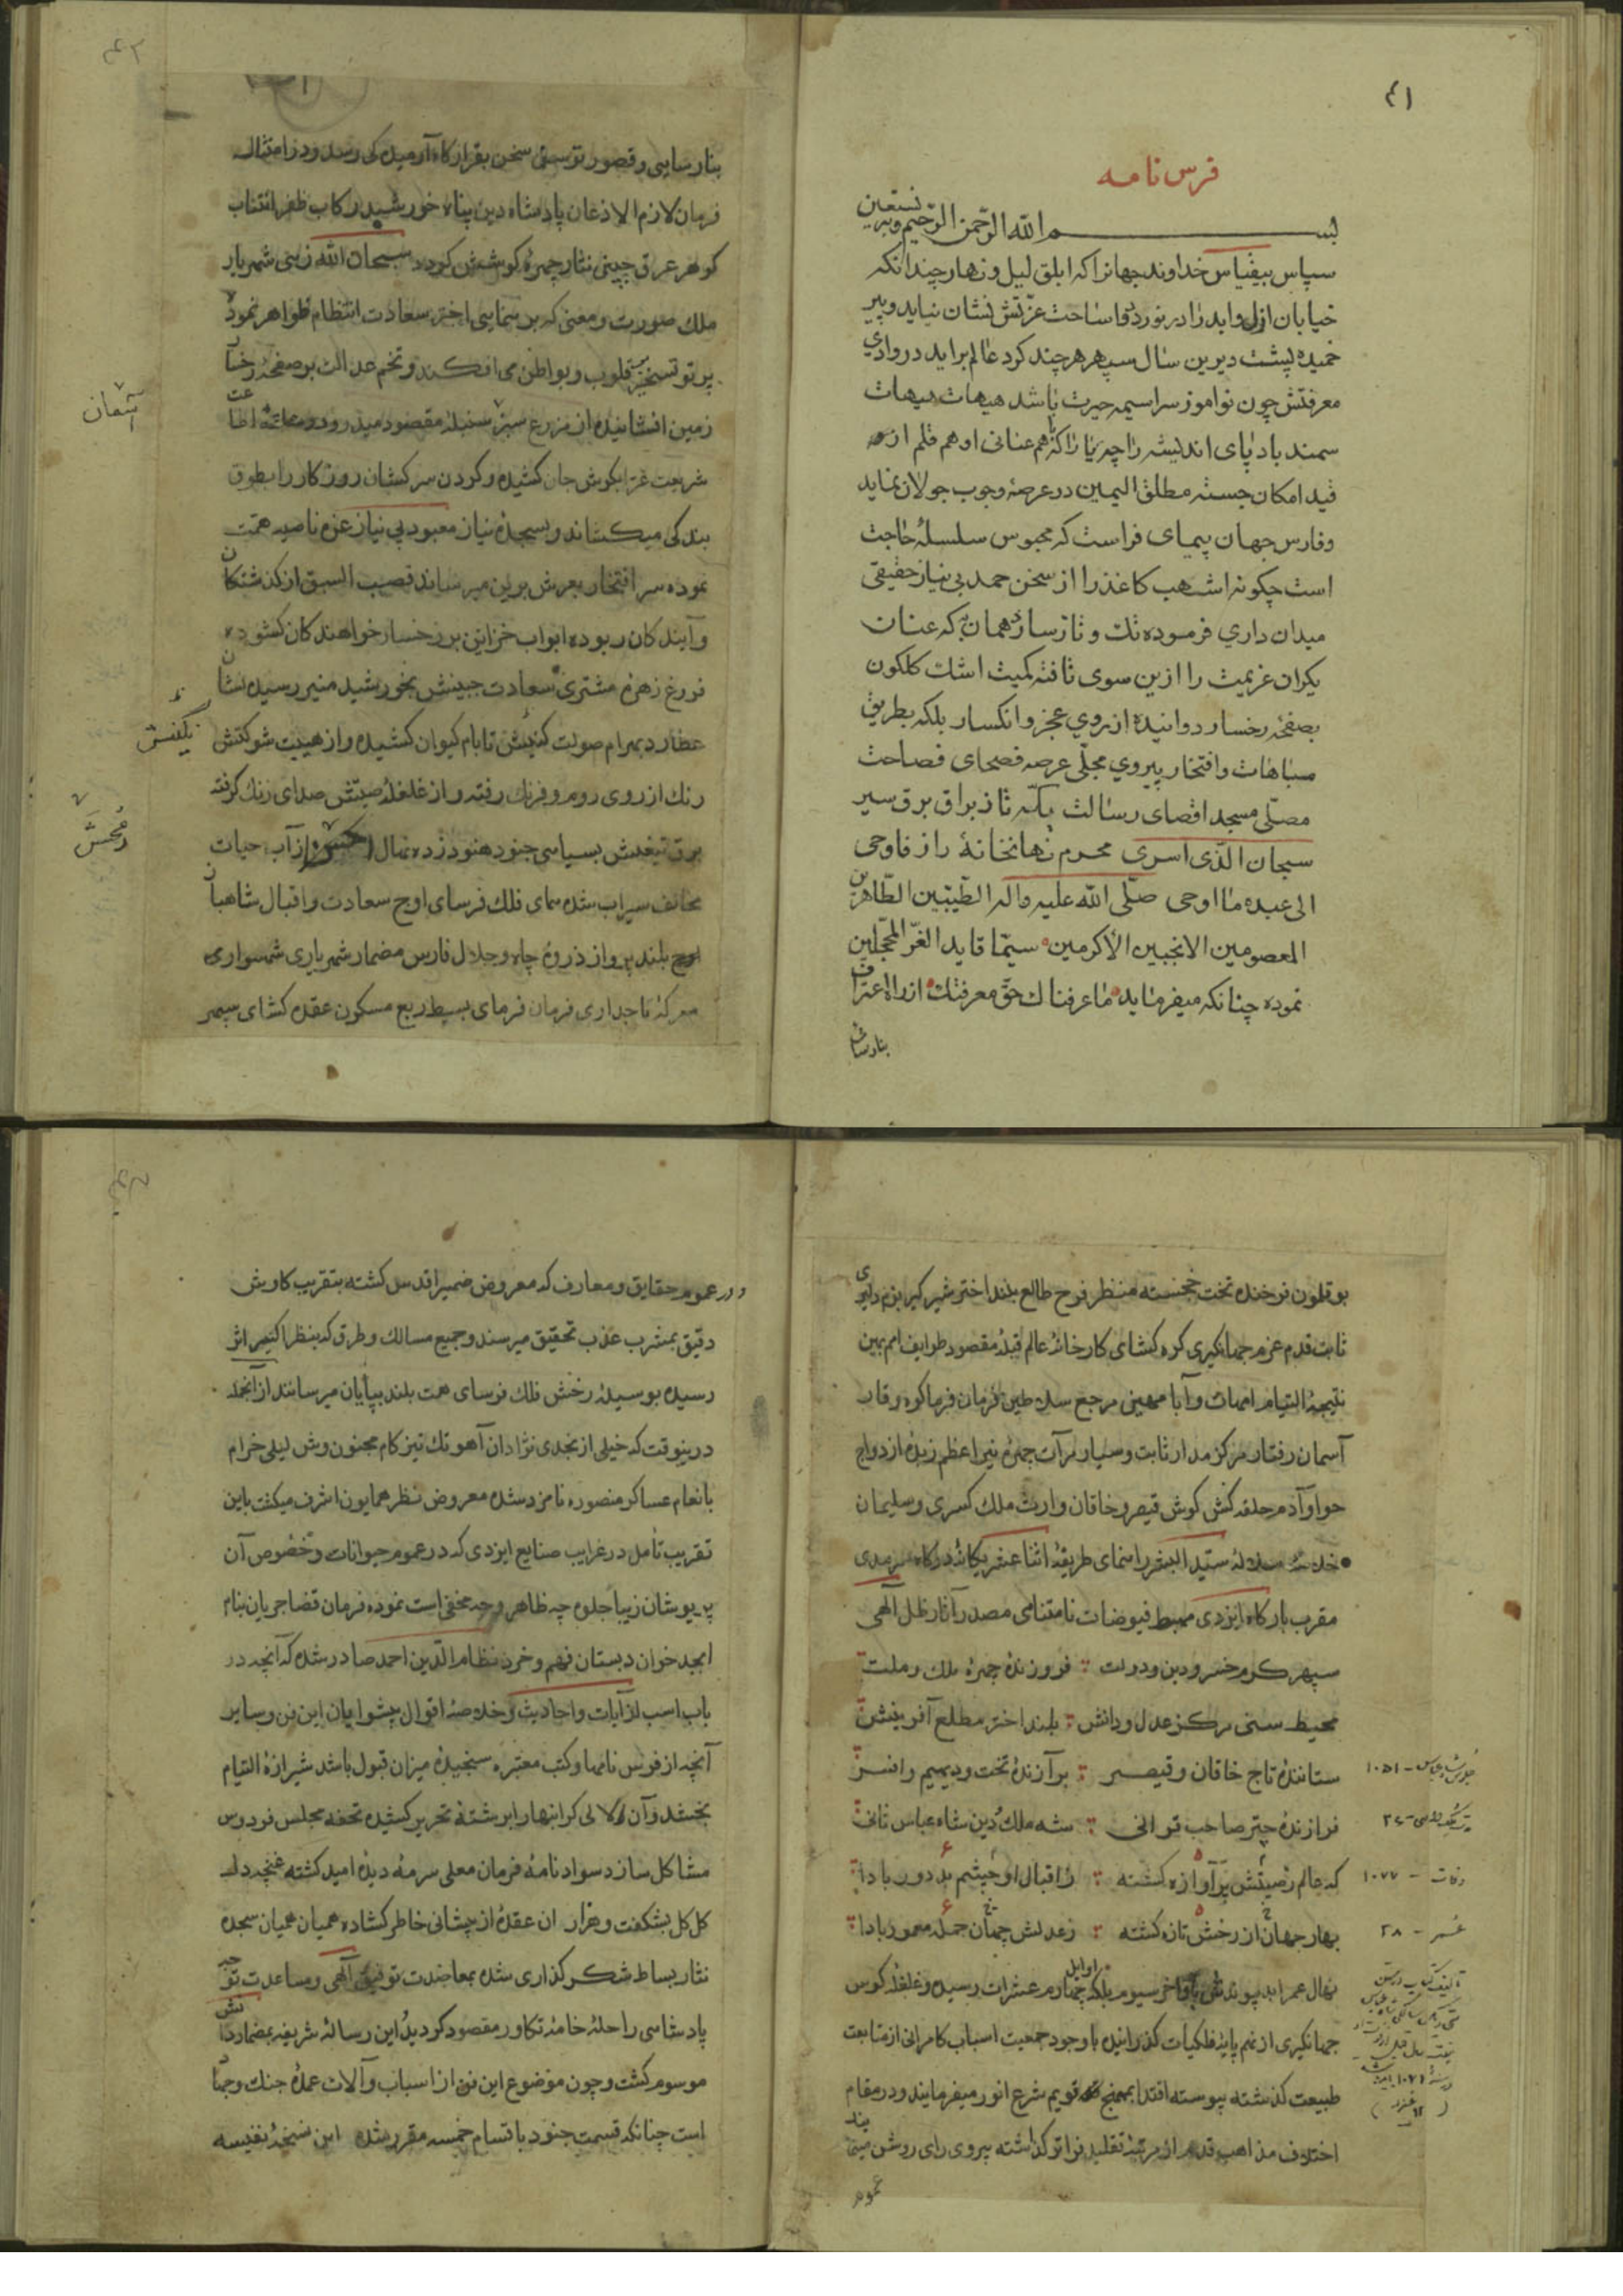 ۴۱
فرس نامه
بسم الله الرحمن الرحیم وبه نستعین
سپاس بیقیاس خداوند جهانرا که ابلق لیل و نهار چندانکه
خیابان ازل وابد را در نوردد فاساحت عزتش نشان نیاید و پیر
خمیده پشت دیرین سال سپهر هر چند کرد عالم براید در وادی
معرفتش چون نواموز سراسیمه حیرت باشد هیهات هیهات
سمند باد پای اندیشه را چه یارا که هم عنانی او هم قلم از
قید امکان جسته مطلق الیمین در عرصه وجوب جولان نماید
وفارس جهان پیمای فراست که محبوس سلسلهٔ حاجت
است چکونه اشهب کاغذ را از سخن حمد بی نیاز حقیقی
میدان داری فرموده تک و تاز سازد همان به که عنان
یکران عزیمت را ازین سوی تافته کمیت اشک کلکون
بصفحه رخسار دوانیده از روی عجز و انکسار بلکه بطریق
مباهات وافتخار پیروی مجلی عرصه فصحای فصاحت
مصلی مسجد اقصای رسالت یکه تاز براق برق سیر
سبحان الذی اسری محرم نهانخانهٔ راز فاوحی
الی عبده ما اوحی صلی الله علیه واله الطیبین الطاهرین
المعصومین الانجبین الاکرمین سیما قاید الغر المحجلین
نموده چنانکه میفرماید ما عرفناک حق معرفتک از راه اعتراف
بنارسائی
بنارسایی و قصور توسن سخن بقرارکاه آرمیدکی رسد ودر امتثال
فرمان لازم الاذعان پادشاه دین پناه خورشید رکاب ظفر انتساب
کوهر عرق جبینی نثار چهرهٔ کوشش کردد سبحان الله زهی شهریار
ملک صورت ومعنی که بر سمای اختر سعادت انتظام ظواهر نمود
پرتو تسخیر بقلوب و بواطن می افکند و تخم عدالت بر صفحه رخسار
زمین افشانیده از مزرع سبز سنبله مقصود میدرود وحلقه اطاعت
شریعت غرا بکوش جان کشیده و کردن سرکشان روزکار را بطوق
بندکی میکشاند و بسجده نیاز معبود بی نیاز غره ناصیه همت
نموده سر افتخار بعرش برین میرساند قصب السبق از کذشتکان
وآیندکان ربوده ابواب خزاین بر رخسار خواهندکان کشوده
فروغ زهره مشتری سعادت جبینش بخورشید منیر رسیده نشان
عطارد بهرام صولت کینش تا بام کیوان کشیده و از هیبت شوکتش
رنک از روی روم و فرنک رفته و از غلغلهٔ صیتش صدای زنک کرفته
برق تیغش بسیاهی جنود هنود زده نهال از آب حیات
مخالف سیراب شده همای فلک فرسای اوج سعادت واقبال شاهباز
بلند پرواز ذروهٔ جاه و جلال فارس مضمار شهریاری شهسواری
معرکهٔ تاجداری فرمان فرمای بسیط ربع مسکون عقده کشای سپهر
بوقلمون فرخنده تخت خجسته منظر فرح طالع بلند اختر شیر کیر بزم دلیری
ثابت قدم عزم جهانکیری کره کشای کارخانهٔ عالم قبلهٔ مقصود طوایف امم بهین
نتیجهٔ التیام امهات وآبا مهین مرجع سلاطین فرمان فرما کوه وقار
آسمان رفتار مرکز مدار ثابت وسیار مرآت چهرهٔ نیر اعظم زبدهٔ ازدواج
حوا وآدم حلقه کش کوش قیصر و خاقان وارث ملک کسری و سلیمان
خلاصهٔ سلالهٔ سید البشر راهنمای طریقهٔ اثنا عشر یکانهٔ درکاه سرمدی
مقرب بارکاه ایزدی مهبط فیوضات نامتناهی مصدر آثار ظل الهی
سپهر کرم خسرو دین و دولت فروزندهٔ چهرهٔ ملک و ملت
محیط سخی مرکز عدل ودانش بلند اختر مطلع آفرینش
ستانندهٔ تاج خاقان و قیصر برآزندهٔ تخت ودیهیم وافسر
فرازندهٔ چتر صاحب قرانی شه ملک دین شاه عباس ثانی
که عالم ز صیتش پرآوازه کشته ز اقبال او چشم بد دور بادا
بهار جهان از رخش تازه کشته ز عدلش جهان جمله معمور بادا
نهال عمر ابد پیوندش باواخر سیوم بلکه اوایل چهارم عشرات رسیده و غلغله کوس
جهانکیری از نهم پایهٔ فلکیات کذرانیده با وجود جمعیت اسباب کامرانی از متابعت
طبیعت کذشته پیوسته اقتدا بمنهج قویم شرع انور میفرمایند و در مقام
اختلاف مذاهب قدم از مرتبهٔ تقلید فراتر کذاشته پیروی رای روشن مینمایند
عموم
جلوس شاه عباس - ۱۰۵۱
وفات - ۱۰۷۷
عمر - ۲۸
ودر عموم حقایق و معارف که معروض ضمیر اقدس کشته بتقریب کاوش
دقیق بمشرب عذب تحقیق میرسند و جمیع مسالک و طرق که بنظر اکسیر اثر
رسیده بوسیلهٔ رخش فلک فرسای همت بلند بپایان میرسانند از آنجمله
درینوقت که خیلی از نجدی نژادان آهو تک تیز کام مجنون وش لیلی خرام
بانعام عساکر منصوره نامزد شده معروض نظر همایون اشرف میکشت باین
تقریب تامل در غرایب صنایع ایزدی که در عموم حیوانات و خصوص آن
پریوشان زیبا جلوه چه ظاهر و چه مخفی است نموده فرمان قضا جریان بنام
ابجد خوان دبستان فهم و خرد نظام الدین احمد صادر شده که آنچه در
باب اسب از آیات واحادیث و خلاصهٔ اقوال پیشوایان این فن و سایر
آنچه از فرس نامها و کتب معتبره سنجیدهٔ میزان قبول باشد شیرازهٔ التیام
بخشد وآن لالی کرانبها را برشتهٔ تحریر کشیده تحفه مجلس فردوس
مشاکل سازد سواد نامهٔ فرمان معلی سرمهٔ دیدهٔ امید کشته غنچه دل
کل کل بشکفت و هزار ان عقده از پیشانی خاطر کشاده همیان همیان سجده
نثار بساط شکر کذاری شده بمعاضدت توفیق الهی ومساعدت توجه
پادشاهی راحلهٔ خامه تکاور مقصود کردید این رسالهٔ شریفه بمضمار دانش
موسوم کشت و چون موضوع این فن از اسباب وآلات عمدهٔ جنک وجهاد
است چنانکه قسمت جنود باقسام خمسه مقرر شده این نسخهٔ نفیسه